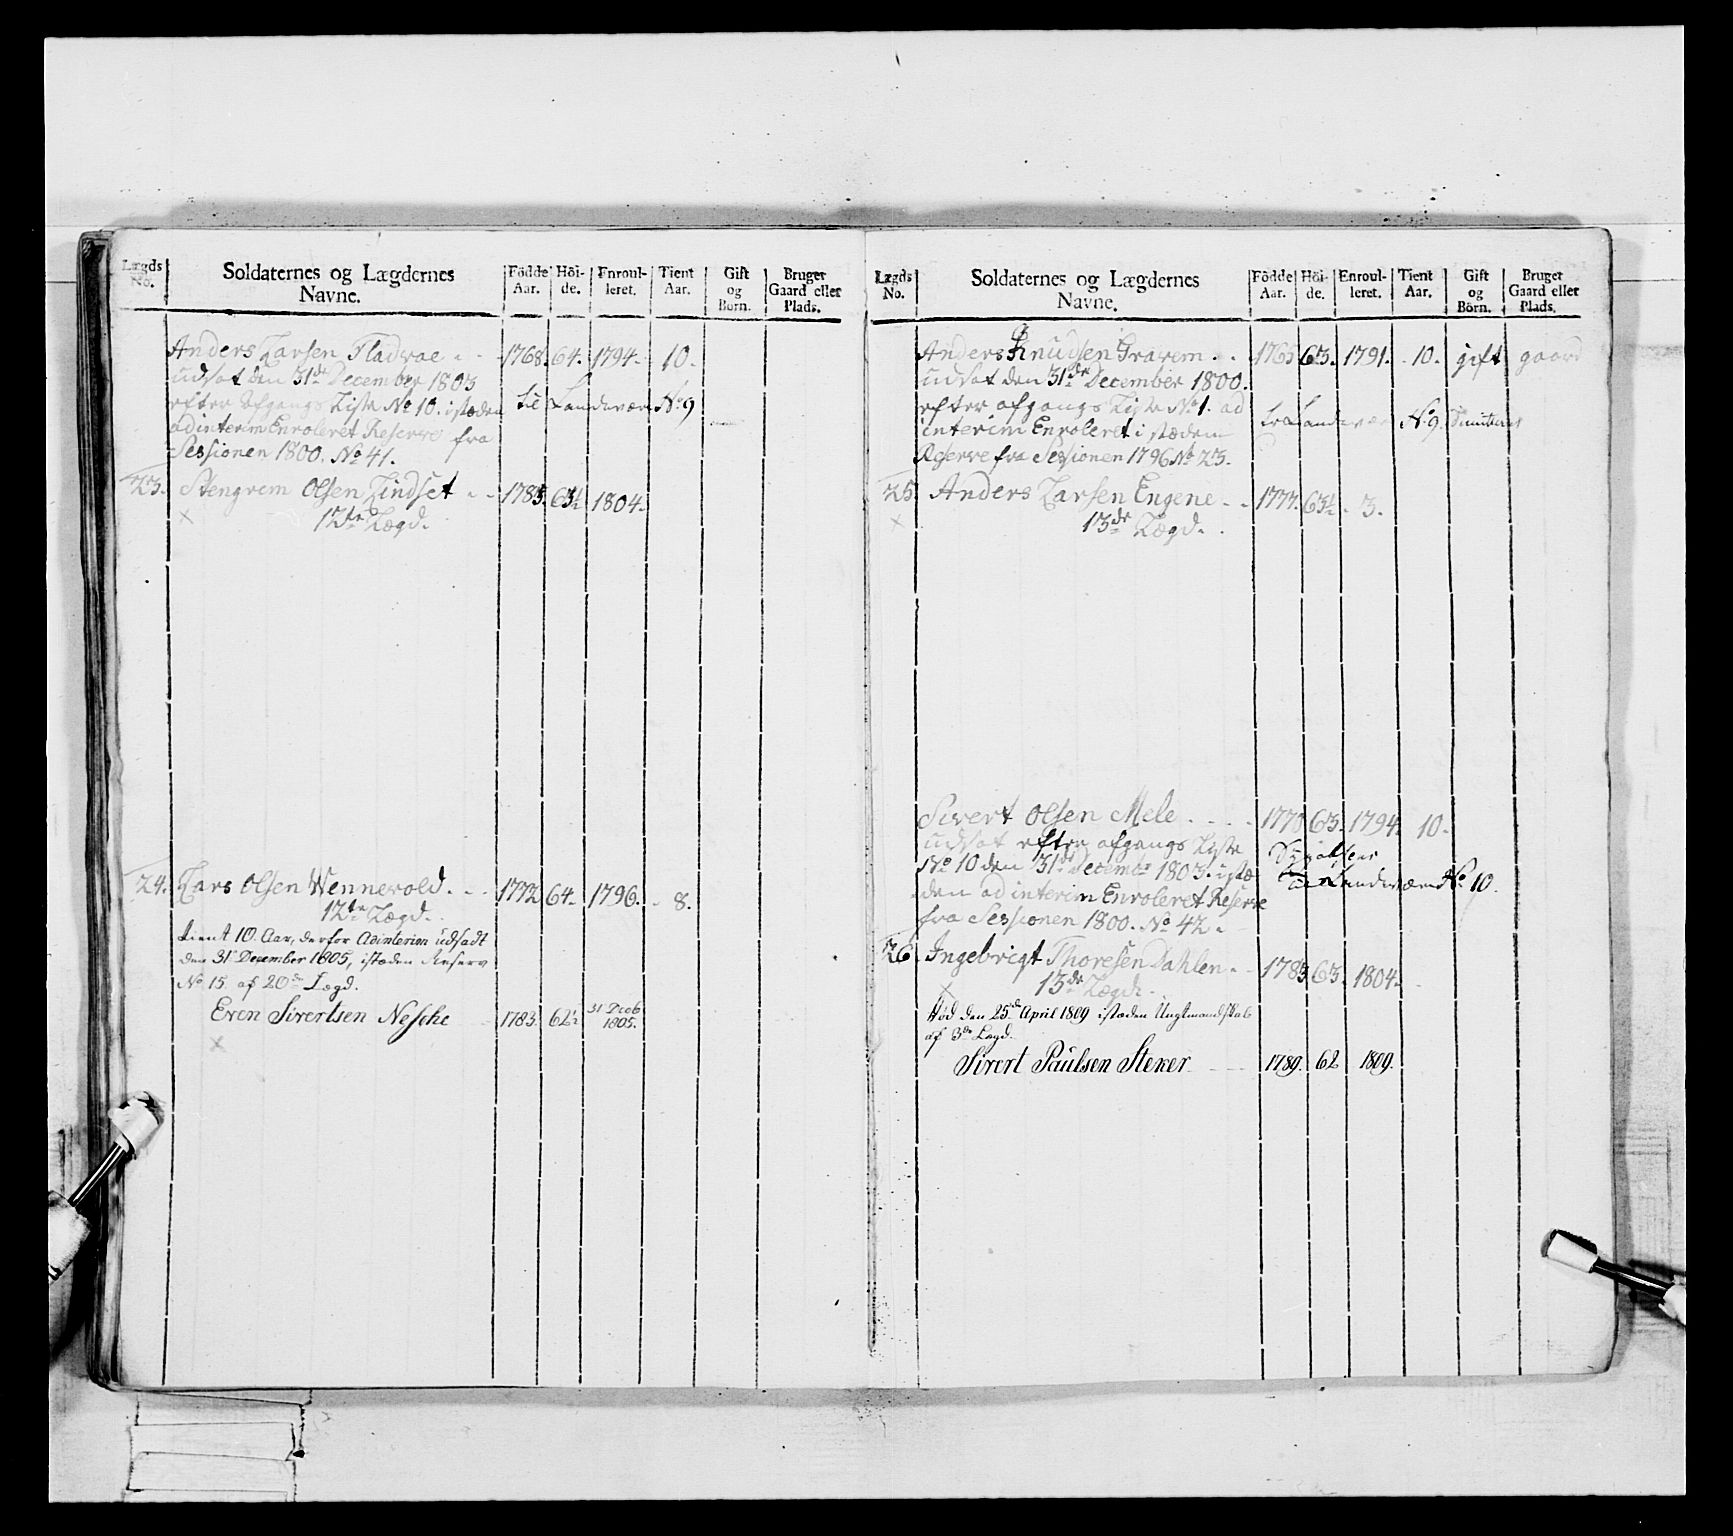 Lægds No. | Soldaternes og Lægdernes Navne. | Födde Aar. | Höi-de. | Enroul-leret. | Tient Aar. | Gift og Börn. | Bruger Gaard eller Plads.
Anders Larsen Fladvae . - 1768. 64. 1794. 10.
udsat den 31de December 1803
efter Afgangs Liste No 10. istæden til Landeværn No 9
ad interim Enroleret Reserve fra
Sessionen 1800. No 41.
23. Stengrem Olsen Lindset . - 1785. 63½ 1804.
× 12de Lægd.
24. Lars Olsen Wennevold . - 1772 64. 1796. 8.
12de Lægd.
tient 10 Aar, derfor Adinterim udsadt
den 31te December 1805, istæden Reserv
No 15. af 20de Lægd.
Even Sivertsen Nesche 1783. 62½ 31 Decb 1805.
×
Lægds No. | Soldaternes og Lægdernes Navne. | Födde Aar. | Höi-de. | Enroul-leret. | Tient Aar. | Gift og Börn. | Bruger Gaard eller Plads.
Anders Knudsen Gravem . . 1765 63. 1791. 10. gift gaard
udsat den 31de December 1800.
efter afgangs Liste No 1. ad
interim Enroleret i stæden Landeværn No 9
Reserve fra Sessionen 1796 No 23.
25. Anders Larsen Engene . - 1777. 63½ 3.
× 13de Lægd.
Sivert Olsen Mele . . . 1770 63. 1794. 10.
udsat efter afgangs Liste
No 10 den 31de Decembr 1803. istæ- Landeværn No 10.
den ad interim Enroleret Reserve
fra Sessionen 1800. No 42.
26. Ingebrigt Thoresen Dahlen . - 1783 63. 1804.
× 13de Lægd.
Död den 25de April 1809 istæden Ungtmandskab
af 3de Lægd.
Sivert Paulsen Steker 1789. 62 1809.